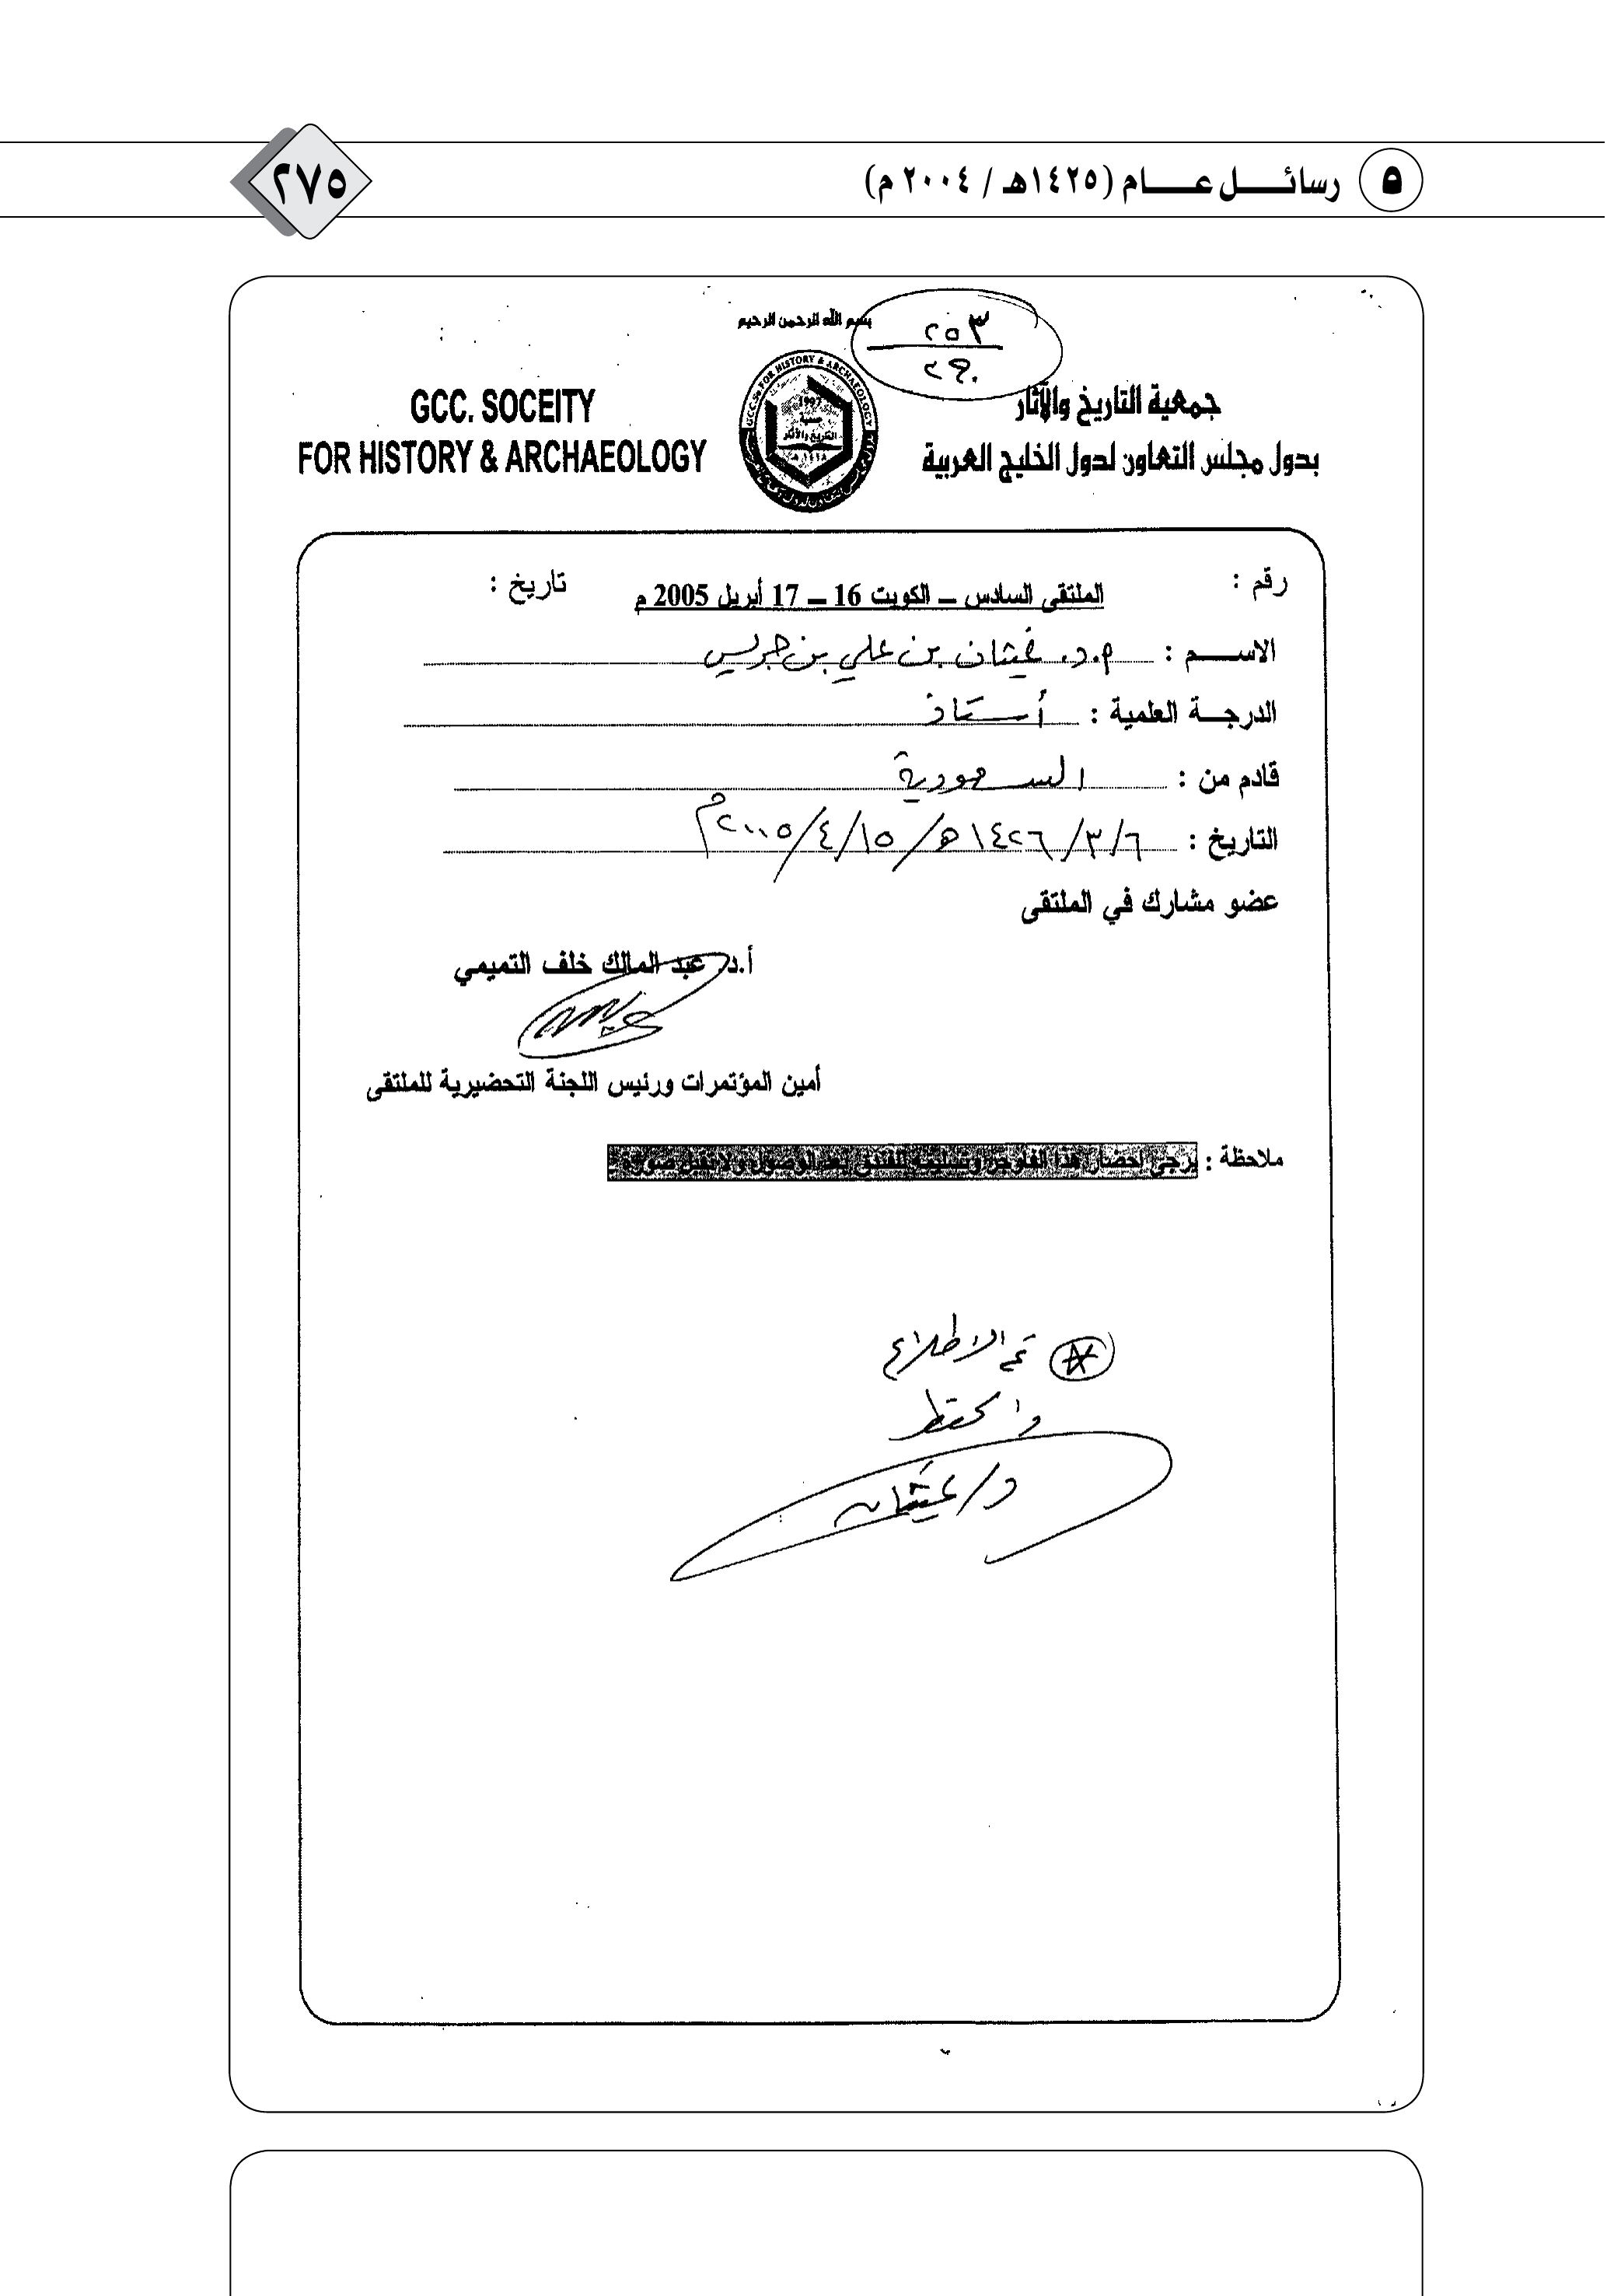 ٥ رسائل عام (١٤٢٥هـ / ٢٠٠٤ م)
٢٧٥
بسم الله الرحمن الرحيم
٢٥٣
جمعية التاريخ والآثار
بدول مجلس التعاون لدول الخليج العربية
GCC. SOCEITY
FOR HISTORY & ARCHAEOLOGY
رقم :
الملتقى السادس – الكويت 16 – 17 أبريل 2005 م
تاريخ :
الاسم : م.د. غيثان بن علي بن جريس
الدرجة العلمية : أستاذ
قادم من : السعودية
التاريخ : ٦/٣/١٤٢٦هـ/١٥/٤/٢٠٠٥م
عضو مشارك في الملتقى
أ.د. عبد المالك خلف التميمي
أمين المؤتمرات ورئيس اللجنة التحضيرية للملتقى
ملاحظة : يرجى احضار هذا الفاوجر وتسليمه للفندق بعد الوصول ولا تقبل صورة
تم الاطلاع
والحفظ
د/غيثان